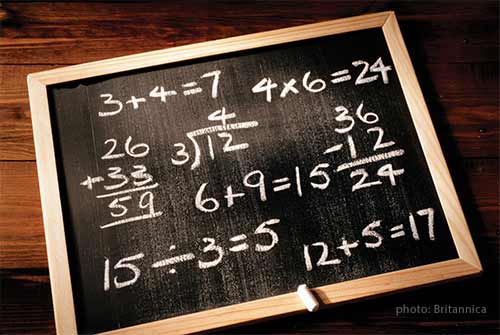 3+4=7
4×6=24
26
+33
59
4
3)12
36
-12
24
6+9=15
15÷3=5
12+5=17
photo: Britannica